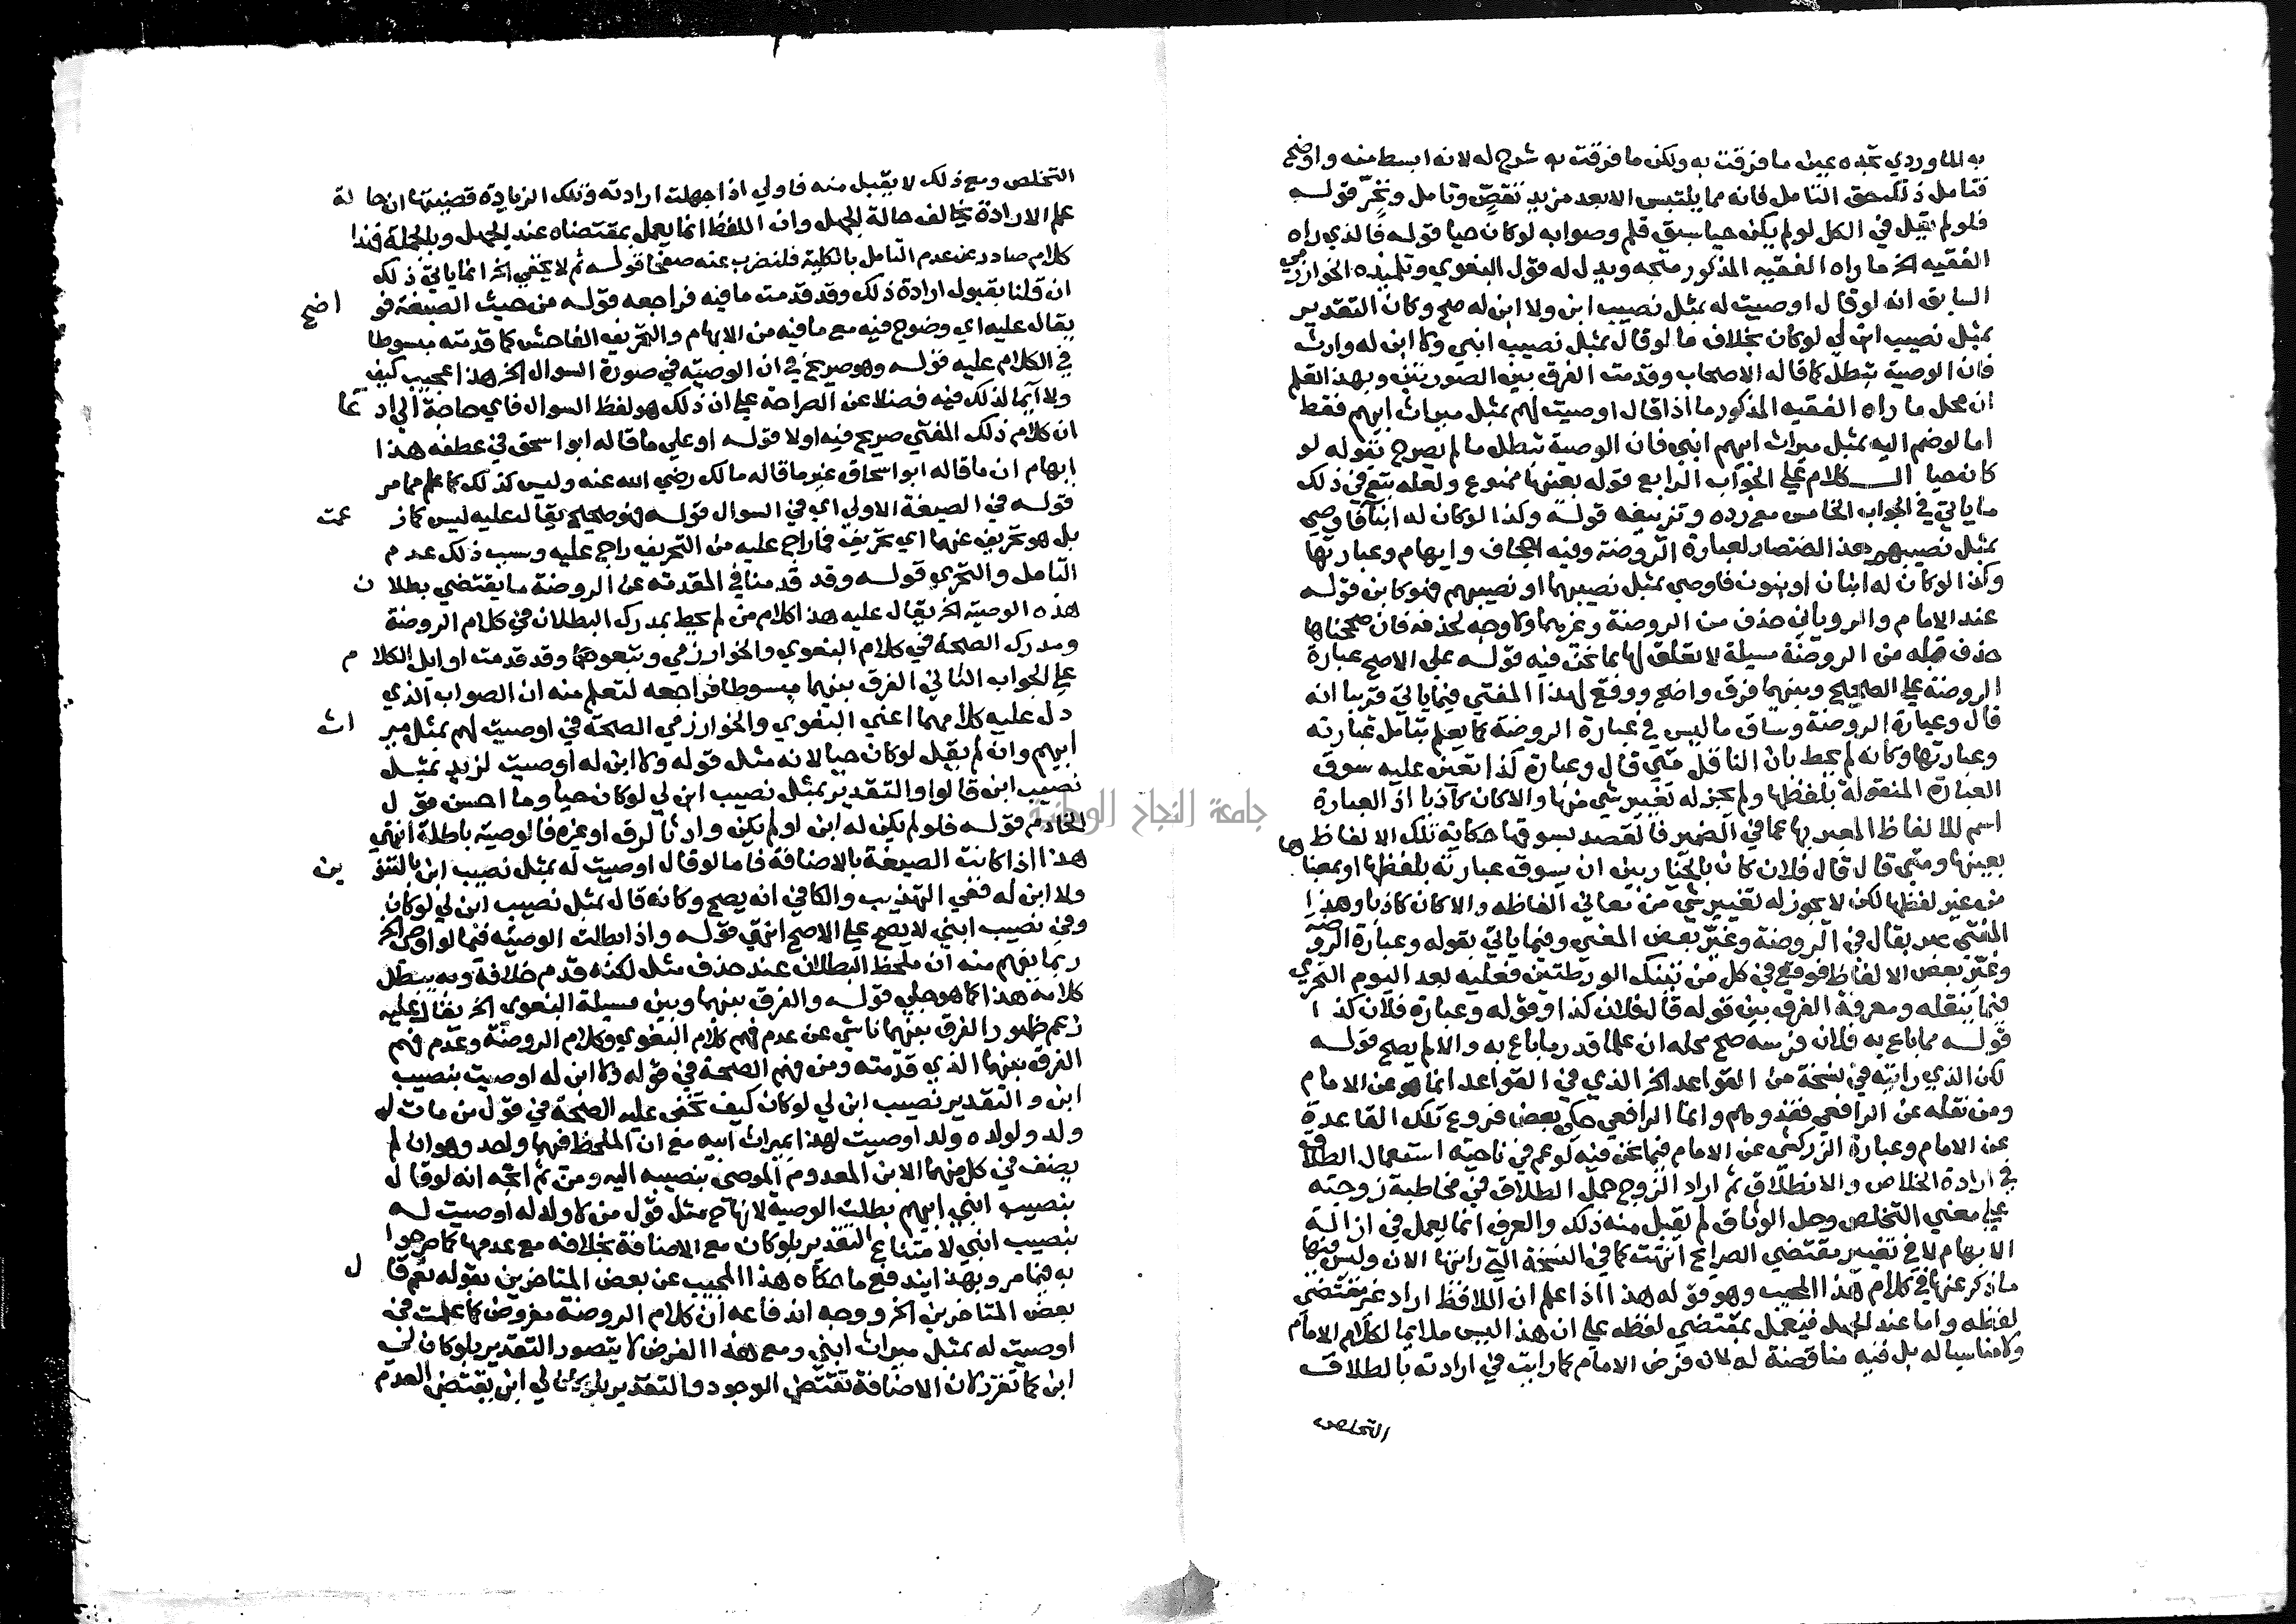 به الماوردي تجده عين ما فرقت به ولكن ما فرقت به شرح له لانه ابسط منه واوضح
فتامل ذلك حق التامل فانه مما يلتبس الا بعد مزيد تفحص وتامل وتحر قوله
فلو لم يقبل في الكل لو لم يكن حيا سبق قلم وصوابه لو كان حيا قوله فالذي راه
الفقيه الخ ما راه الفقيه المذكور متجه ويدل له قول البغوي وتلميذه الخوارزمي
السابق انه لو قال اوصيت له بمثل نصيب ابن ولا ابن له صح وكان التقدير
بمثل نصيب ابن لي لو كان بخلاف ما لو قال بمثل نصيب ابني ولا ابن له وارث
فان الوصية تبطل كما قاله الاصحاب وقدمت الفرق بين الصورتين وبهذا تعلم
ان محل ما راه الفقيه المذكور ما اذا قال اوصيت لهم بمثل ميراث ابيهم فقط
اما لو ضم اليه بمثل ميراث ابيهم ابني فان الوصية تبطل ما لم يصرح بقوله لو
كان حيا الكلام علي الجواب الرابع قوله بعينها ممنوع ولعله يتبع في ذلك
ما ياتي في الجواب الخامس مع رده وتزييفه قوله وكذا لو كان له ابنان فاوصي
بمثل نصيبهم هذا اختصار لعبارة الروضة وفيه اجحاف وايهام وعبارتها
وكذا لو كان له ابنان او بنون فاوصي بمثل نصيبهما او نصيبهم فهو كابن قوله
عند الامام والروياني حذف من الروضة وغيرهما ولا وجه لحذفه فان صححناها
حذف قبله من الروضة مسيلة لا تعلق لها بما نحن فيه قوله علي الاصح عبارة
الروضة علي الصحيح وبينهما فرق واضح ووقع لهذا المفتي فيما ياتي قريبا انه
قال وعبارة الروضة وساق ما ليس في عبارة الروضة كما يعلم بتامل عبارته
وعبارتها وكانه لم يحط بان الناقل متي قال وعبارة كذا تعين عليه سوق
العبارة المنقولة بلفظها ولم يجز له تغيير شي منها والا كان كاذبا اذ العبارة
اسم للالفاظ المعبر بها عما في الضمير فالقصد بسوقها حكاية تلك الالفاظ
بعينها ومتي قال قال فلان كان بالخيار بين ان يسوق عبارته بلفظها او بمعناها
من غير لفظها لكن لا يجوز له تغيير شي من معاني الفاظه والا كان كاذبا وهذا
المفتي عبر بقال في الروضة وغير بعض المعني وفيما ياتي بقوله وعبارة الروضة
وغير بعض الالفاظ فوقع في كل من تينك الورطتين فعليه بعد اليوم التحري
فيما ينقله ومعرفة الفرق بين قوله قال فلان كذا وقوله وعبارة فلان كذا
قوله مما باع به فلان فرسه صح محله ان علما قدر ما باع به والا لم يصح قوله
لكن الذي رايته في نسخة من القواعد الخ الذي في القواعد انما هو عن الامام
ومن نقله عن الرافعي فقد وهم وانما الرافعي حكي بعض فروع تلك القاعدة
عن الامام وعبارة الزركشي عن الامام فيما نحن فيه لو عم في ناحية استعمال الطلاق
في ارادة الخلاص والانطلاق ثم اراد الزوج حمل الطلاق في مخاطبة زوجته
علي معني التخلص وحل الوثاق لم يقبل منه ذلك والعرف انما يعمل في ازالة
الابهام لا في تغيير مقتضي الصرايح انتهت كما في النسخة التي رايتها الان وليس فيها
ما ذكر عنها في كلام هذا المجيب وهو قوله هذا اذا علم ان اللافظ اراد غير مقتضي
لفظه واما عند الجهل فيعمل بمقتضي لفظه علي ان هذا ليس ملايما لكلام الامام
ولا مناسبا له بل فيه مناقضة له لان فرض الامام كما رايت في ارادته بالطلاق
التخلص
التخلص ومع ذلك لا يقبل منه فاولي اذا جهلت ارادته وتلك الزيادة قضيتها ان حالة
علم الارادة تخالف حالة الجهل وان اللفظ انما يعمل بمقتضاه عند الجهل وبالجملة فهذا
كلام صادر عن عدم التامل بالكلية فلنضرب عنه صفحا قوله ثم لا يخفي الخ انما ياتي ذلك
ان قلنا بقبول ارادة ذلك وقد قدمت ما فيه فراجعه قوله من حيث الصيغة فواضح
يقال عليه اي وضوح فيه مع ما فيه من الابهام والتحريف الفاحش كما قدمته مبسوطا
في الكلام عليه قوله وهو صريح في ان الوصية في صورة السوال الخ هذا عجيب كيف
ولا ايما لذلك فيه فضلا عن الصراحة علي ان ذلك هو لفظ السوال فاي حاجة الي ادعا
ان كلام ذلك المفتي صريح فيه اولا قوله او علي ما قاله ابو اسحق في عطفه هذا
ايهام ان ما قاله ابو اسحاق غير ما قاله مالك رضي الله عنه وليس كذلك كما علم مما مر
قوله في الصيغة الاولي اي في السوال قوله فهو صحيح يقال عليه ليس كما زعمت
بل هو تحريف عنها اي تحريف فما راج عليه من التحريف راج عليه وسبب ذلك عدم
التامل والتحري قوله وقد قدمنا في المقدمة عن الروضة ما يقتضي بطلان
هذه الوصية الخ يقال عليه هذا كلام من لم يحط بمدرك البطلان في كلام الروضة
ومدرك الصحة في كلام البغوي والخوارزمي ومتبوعهما وقد قدمت اوايل الكلام
علي الجواب الثاني الفرق بينهما مبسوطا فراجعه لتعلم منه ان الصواب الذي
دل عليه كلامهما اعني البغوي والخوارزمي الصحة في اوصيت لهم بمثل ميراث
ابيهم وان لم يقبل لو كان حيا لانه مثل قوله ولا ابن له اوصيت لزيد بمثل
نصيب ابن قالوا والتقدير بمثل نصيب ابن لي لو كان حيا وما احسن قول
الخادم قوله فلو لم يكن له ابن او لم يكن وارثا لرق او غيره فالوصية باطلة انتهي
هذا اذا كانت الصيغة بالاضافة فاما لو قال اوصيت له بمثل نصيب ابن بالتنوين
ولا ابن له ففي التهذيب والكافي انه يصح وكانه قال بمثل نصيب ابن لي لو كان
وفي نصيب ابني لا يصح علي الاصح انتهي قوله واذا بطلت الوصية فيما لو اوصي الخ
ربما يفهم منه ان ملحظ البطلان عند حذف مثل لكنه قدم خلافه وبه يبطل
كلامه هذا كما هو جلي قوله والفرق بينهما وبين مسيلة البغوي الخ يقال عليه
زعم ظهور الفرق بينهما ناشي عن عدم فهم كلام البغوي وكلام الروضة وعدم فهم
الفرق بينهما الذي قدمته ومن فهم الصحة في قوله ولا ابن له اوصيت بنصيب
ابن والتقدير نصيب ابن لي لو كان كيف تخفي عليه الصحة في قول من مات له
ولد ولولاده ولد اوصيت لهذا بميراث ابيه مع ان الملحظ فيهما واحد وهو ان لم
يضف في كل منهما الابن المعدوم الموصي بنصيبه اليه ومن ثم اتجه انه لو قال
بنصيب ابني ابيهم بطلت الوصية لانها ح مثل قول من لا ولد له اوصيت له
بنصيب ابني لامتناع التقدير بلو كان مع الاضافة بخلافه مع عدمها كما صرحوا
به فيما مر وبهذا يندفع ما حكاه هذا المجيب عن بعض المتاخرين بقوله نعم قال
بعض المتاخرين الخ ووجه اندفاعه ان كلام الروضة مفروض كما علمت في
اوصيت له بمثل ميراث ابني ومع هذا الفرض لا يتصور التقدير بلو كان لي
ابن كما تقرر لان الاضافة تقتضي الوجود والتقدير بلو كان لي ابن يقتضي العدم
جامعة النجاح الوطنية